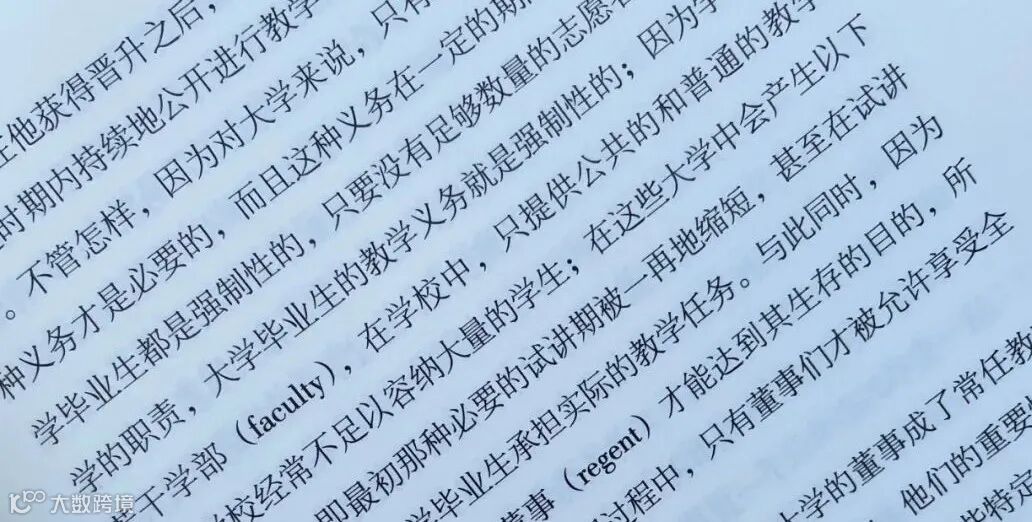 在他获得晋升之后，
时期内持续地公开进行教学
。不管怎样，因为对大学来说，只有
种义务才是必要的，而且这种义务在一定的期
学毕业生都是强制性的，只要没有足够数量的志愿者
学的职责，大学毕业生的教学义务就是强制性的；因为学
若干学部（faculty），在学校中，只提供公共的和普通的教学
校经常不足以容纳大量的学生；在这些大学中会产生以下
即最初那种必要的试讲期被一再地缩短，甚至在试讲
学毕业生承担实际的教学任务。与此同时，因为
董事（regent）才能达到其生存的目的，所
过程中，只有董事们才被允许享受全
大学的董事成了常任教
他们的重要
些特定
大数跨境